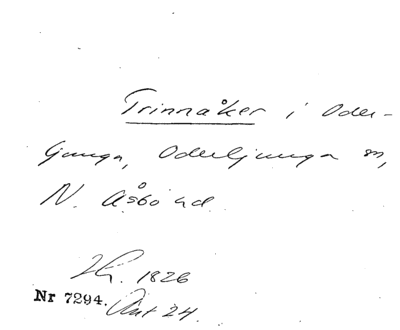 Trinnåker i Oder-
ljunga, Oderljunga sn,
N. Åsbo hd.
1826
Nr 7294. Ant 24.